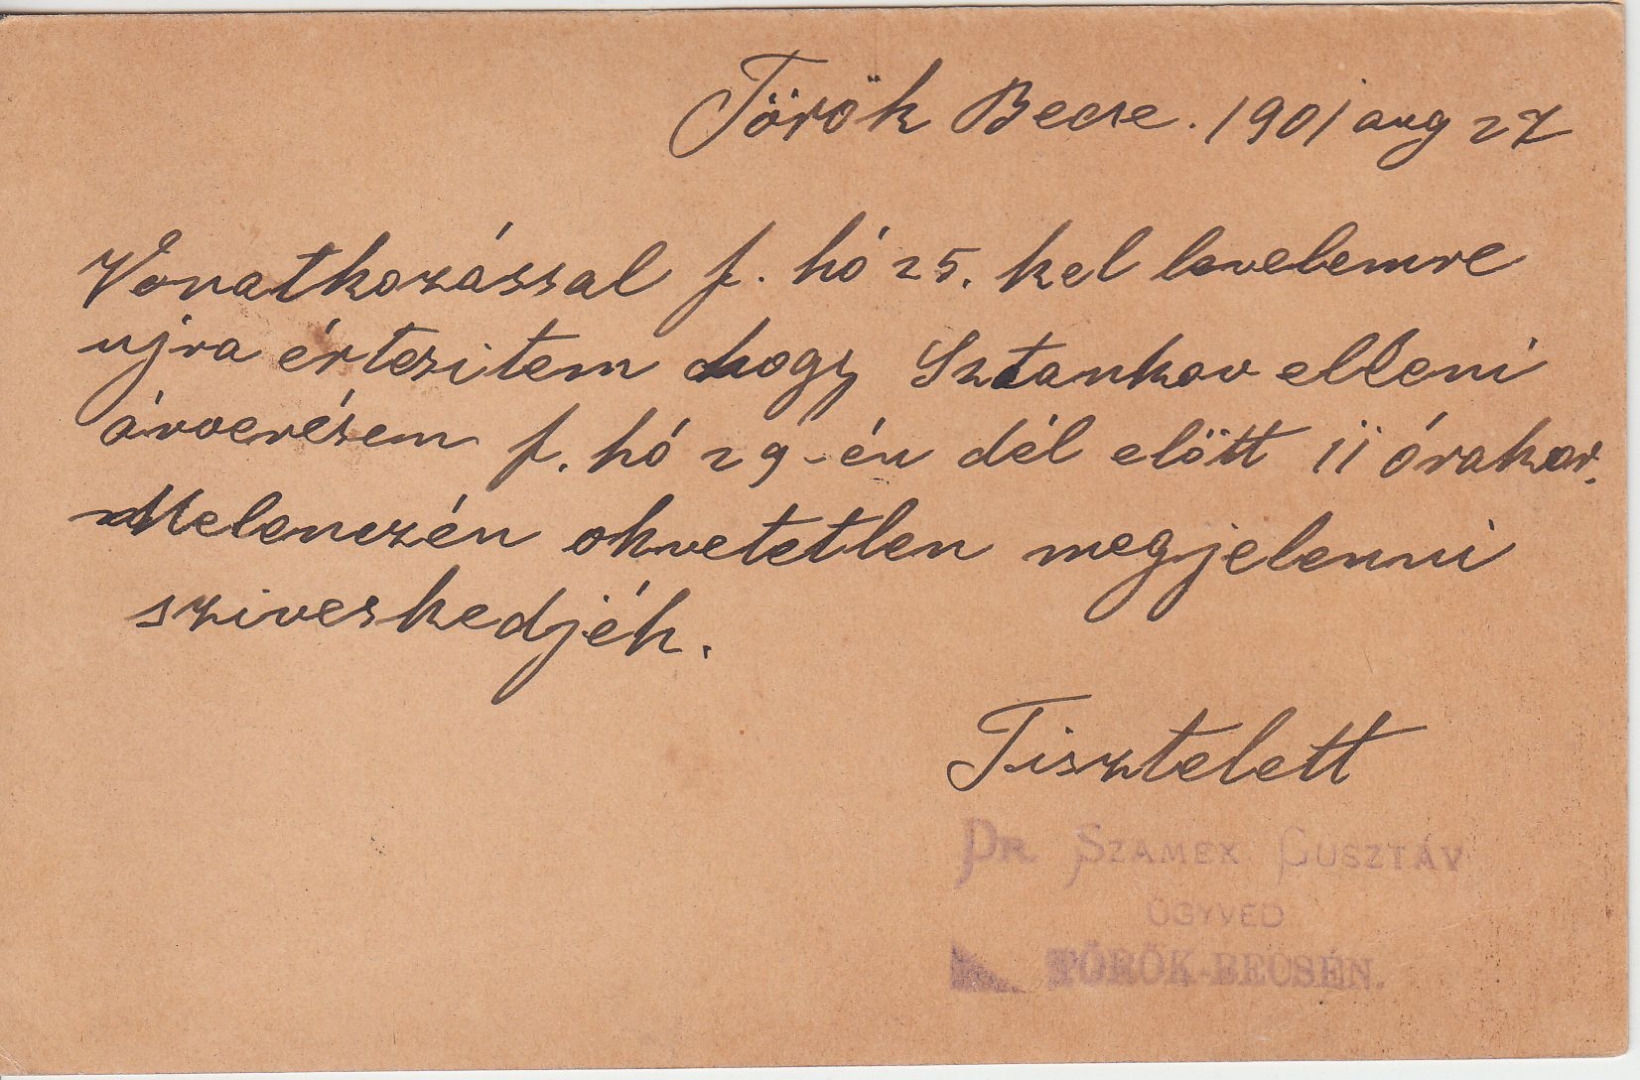 Török Becse. 1901 aug 27
Vonatkozással f. hó 25. kel levelemre
ujra értesitem hogy Sztankov elleni
árverésem f. hó 29-én dél elött 11 órakor
Melenczén okvetetlen megjelenni
sziveskedjék.
Tisztelett
DR. SZAMEK GUSZTÁV
ÜGYVÉD
TÖRÖK-BECSÉN.